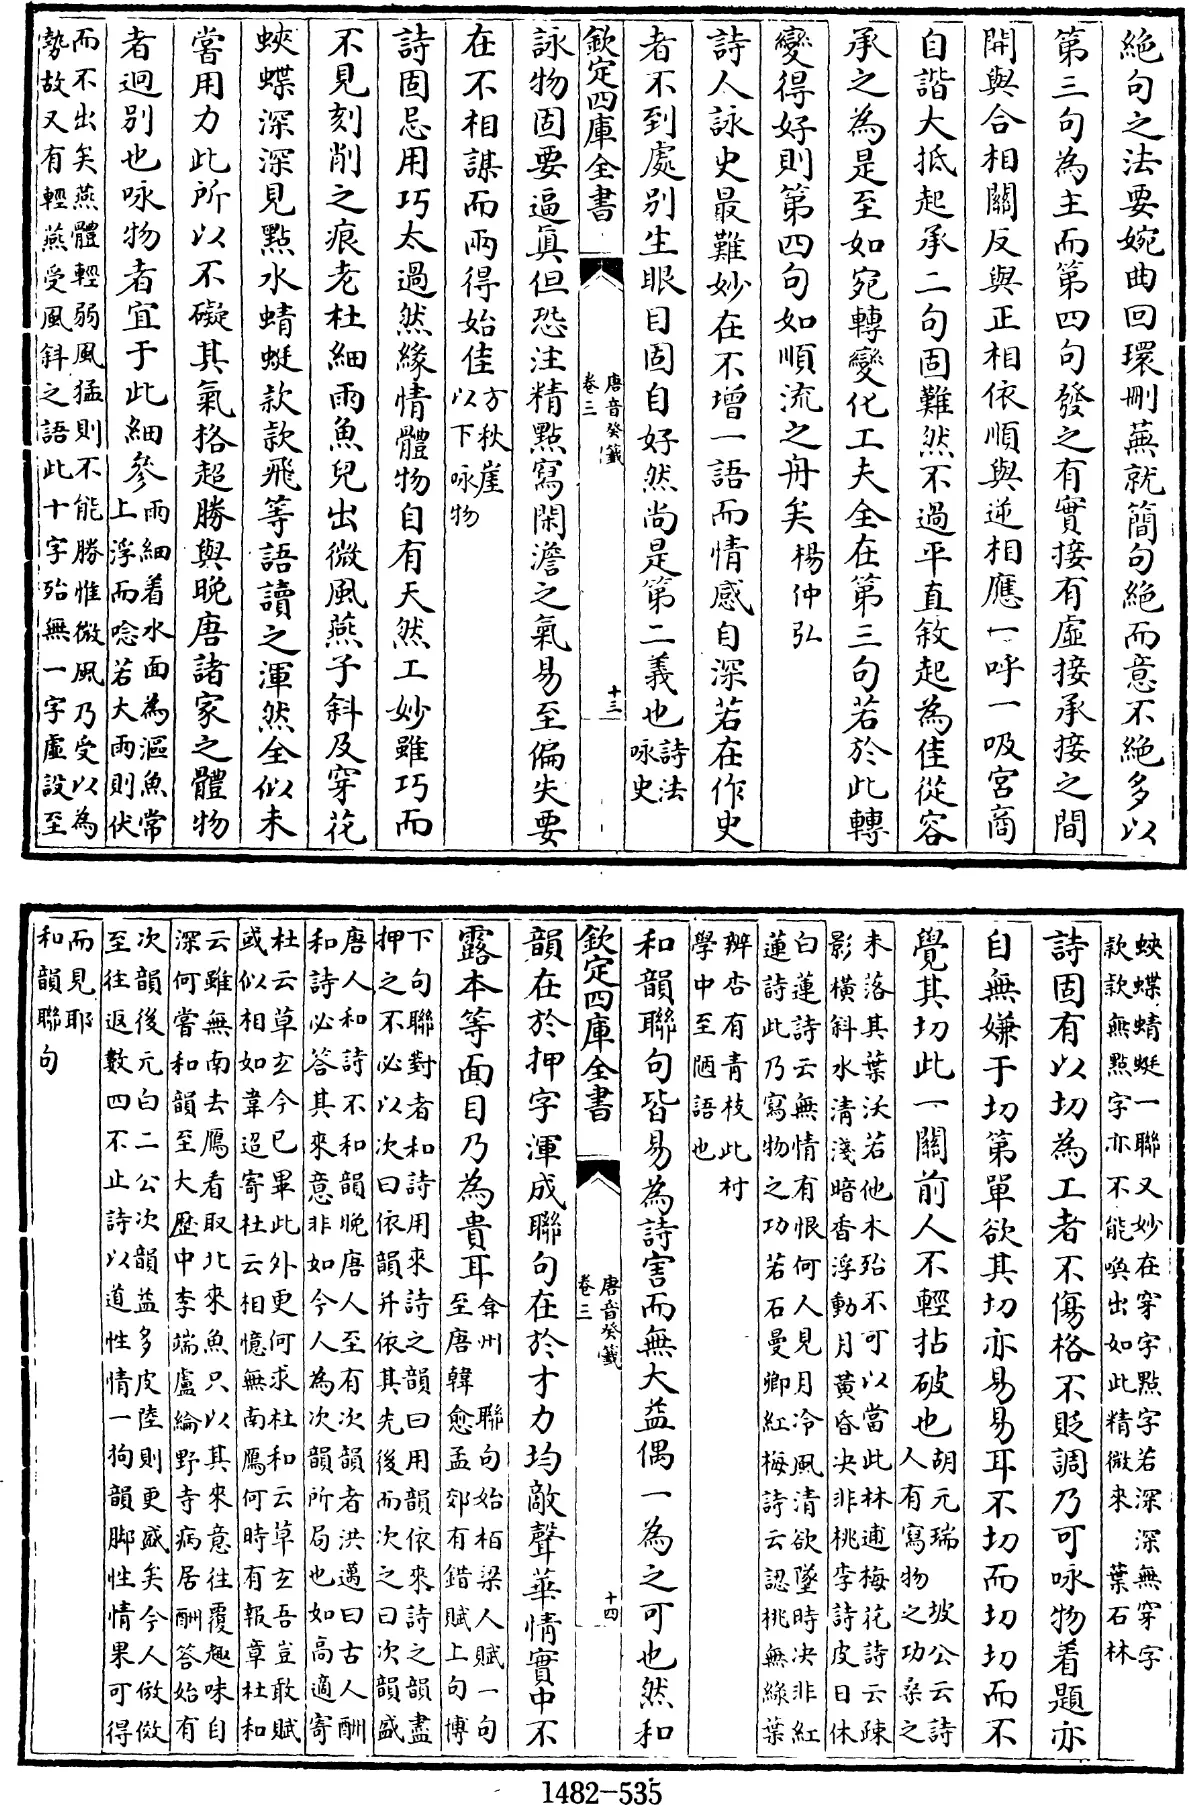 絶句之法要婉曲回環刪蕪就簡句絶而意不絶多以
第三句為主而第四句發之有實接有虛接承接之間
開與合相關反與正相依順與逆相應一呼一吸宮商
自諧大抵起承二句固難然不過平直敘起為佳從容
承之為是至如宛轉變化工夫全在第三句若於此轉
變得好則第四句如順流之舟矣楊仲弘
詩人詠史最難妙在不增一語而情感自深若在作史
者不到處別生眼目固自好然尚是第二義也詩法
咏史
欽定四庫全書
唐音癸籖
卷三
十三
詠物固要逼真但恐注精點寫閑澹之氣易至偏失要
在不相謀而兩得始佳方秋崖
以下咏物
詩固忌用巧太過然緣情體物自有天然工妙雖巧而
不見刻削之痕老杜細雨魚兒出微風燕子斜及穿花
蛺蝶深深見點水蜻蜓款款飛等語讀之渾然全似未
嘗用力此所以不礙其氣格超勝與晚唐諸家之體物
者迥別也咏物者宜于此細參雨細着水面為漚魚常
上浮而唸若大雨則伏
而不出矣燕體輕弱風猛則不能勝惟微風乃受以為
勢故又有輕燕受風斜之語此十字殆無一字虛設至
蛺蝶蜻蜓一聯又妙在穿字點字若深深無穿字
款款無點字亦不能喚出如此精微來 葉石林
詩固有以切為工者不傷格不貶調乃可咏物着題亦
自無嫌于切第單欲其切亦易易耳不切而切切而不
覺其切此一關前人不輕拈破也胡元瑞 坡公云詩
人有寫物之功桑之
未落其葉沃若他木殆不可以當此林逋梅花詩云疎
影橫斜水清淺暗香浮動月黃昏决非桃李詩皮日休
白蓮詩云無情有恨何人見月冷風清欲墜時决非紅
蓮詩此乃寫物之功若石曼卿紅梅詩云認桃無綠葉
辨杏有青枝此村
學中至陋語也
和韻聯句皆易為詩害而無大益偶一為之可也然和
欽定四庫全書
唐音癸籖
卷三
十四
韻在於押字渾成聯句在於才力均敵聲華情實中不
露本等面目乃為貴耳弇州 聯句始栢梁人賦一句
至唐韓愈孟郊有錯賦上句博
下句聯對者和詩用來詩之韻曰用韻依來詩之韻盡
押之不必以次曰依韻并依其先後而次之曰次韻盛
唐人和詩不和韻晚唐人至有次韻者洪邁曰古人酬
和詩必答其來意非如今人為次韻所局也如高適寄
杜云草玄今已畢此外更何求杜和云草玄吾豈敢賦
或似相如韋迢寄杜云相憶無南鴈何時有報章杜和
云雖無南去鴈看取北來魚只以其來意往覆趣味自
深何嘗和韻至大歷中李端盧綸野寺病居酬答始有
次韻後元白二公次韻益多皮陸則更盛矣今人倣倣
至往返數四不止詩以道性情一狥韻脚性情果可得
而見耶
和韻聯句
1482-535